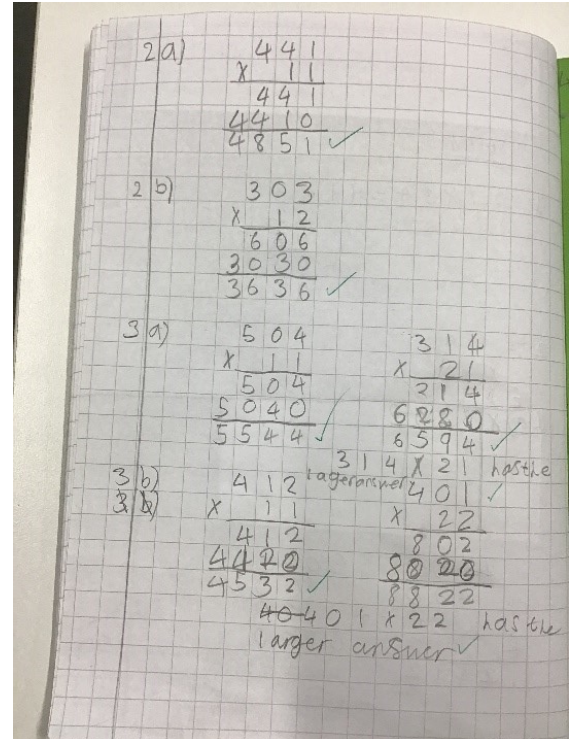 2 a) 441
x 11
441
4410
4851 ✓
2 b) 303
x 12
606
3030
3636 ✓
3 a) 504
x 11
504
5040
5544 ✓
314
x 21
214
6280
6594 ✓
314 x 21 has the
lager answer ✓
3 b)
3 b) 412
x 11
412
4120
4532 ✓
401
x 22
802
8020
8822
40 401 x 22 has the
larger answer ✓